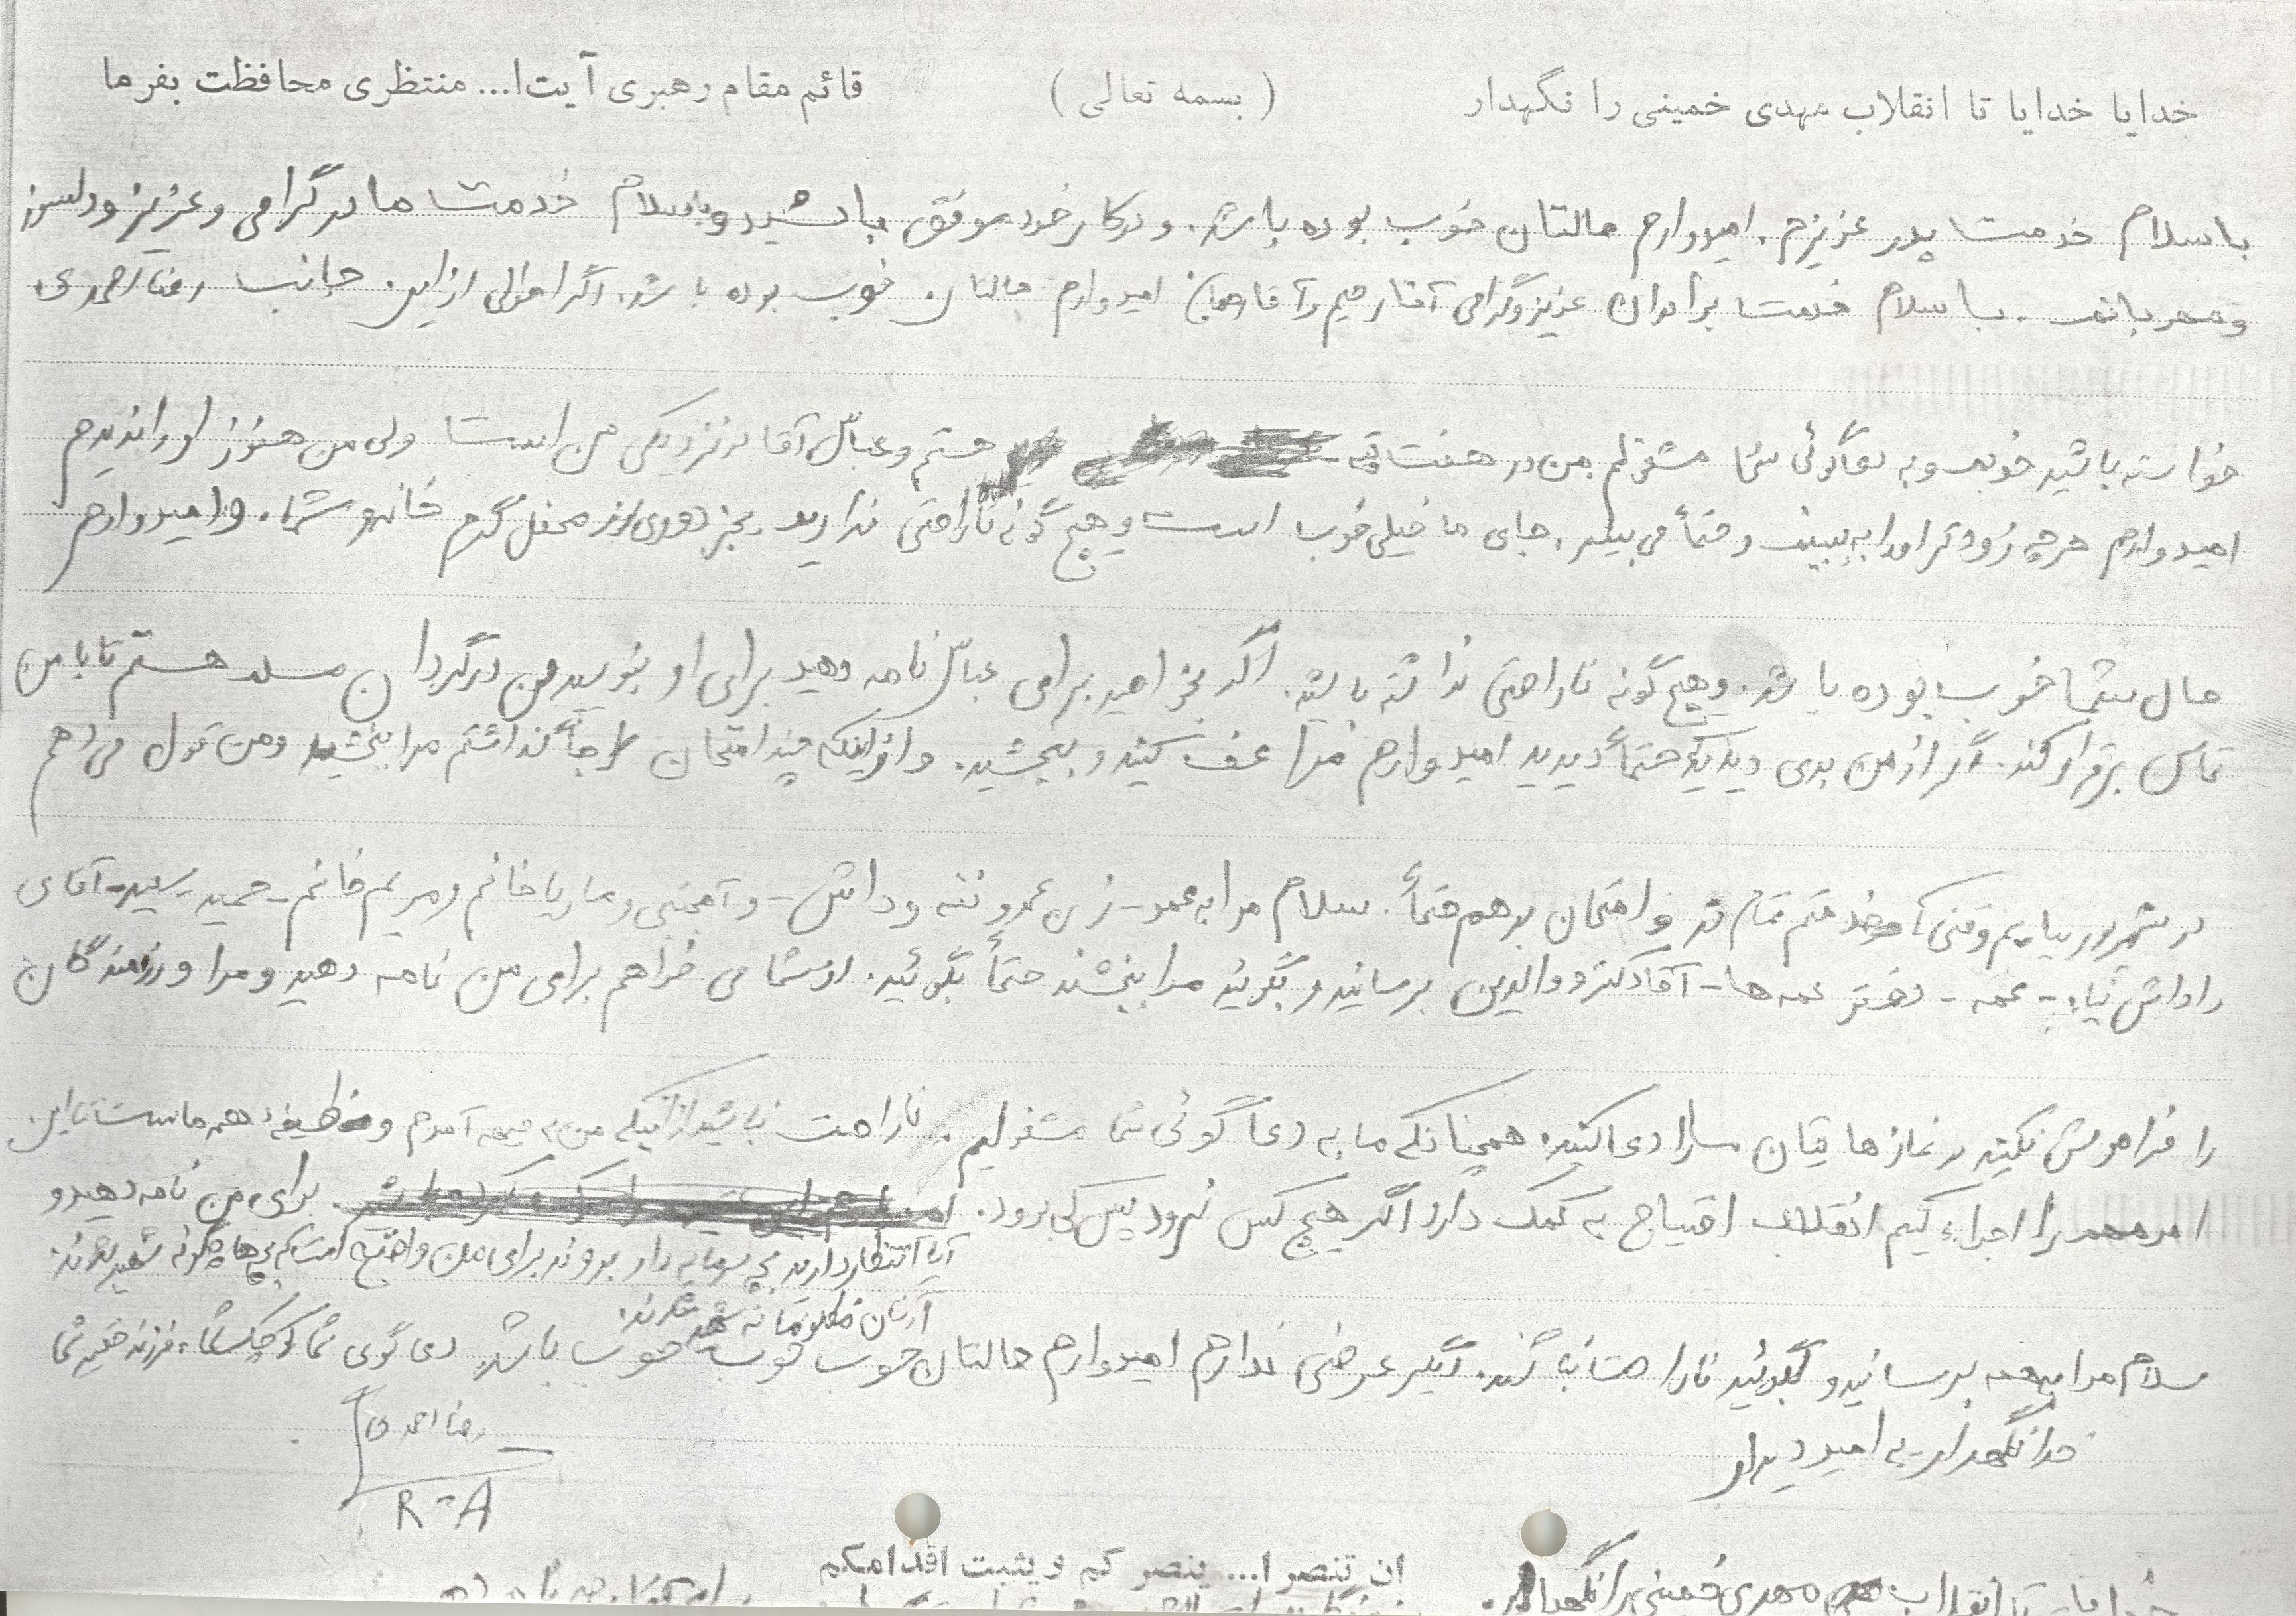 خدایا خدایا تا انقلاب مهدی خمینی را نگهدار
(بسمه تعالی)
قائم مقام رهبری آیت ا... منتظری محافظت بفرما
با سلام خدمت پدر عزیزم. امیدوارم حالتان خوب بوده باشد. و در کار خود موفق باشید و با سلام خدمت مادر گرامی و عزیز و دلسوز
و مهربانم. با سلام خدمت برادران عزیز و گرامی آقا رحیم و آقا رحمان امیدوارم حالتان خوب بوده باشد. اگر احوالی از این جانب رضا احمدی
خواسته باشید خوبم و به دعاگوئی شما مشغولم من در هفت تپه هستم و عباس آقا در نزدیکی من است ولی من هنوز او را ندیدم
امیدوارم هرچه زودتر او را به بینم و حتماً می بینم. جای ما خیلی خوب است و هیچ گونه ناراحتی نداریم. بجز دوری از محفل گرم خانه و شما. و امیدوارم
حال شما خوب بوده باشد. و هیچ گونه ناراحتی نداشته باشید. اگر بخواهید برای عباس نامه دهید برای او بنویسید من در گردان هستم تا با من
تماس برقرار کند. اگر از من بدی دیدید که حتماً دیدید امیدوارم مرا عفو کنید و ببخشید. و از اینکه چند امتحان را جا گذاشتم مرا ببخشید و من قول می دهم
در شهریور بیایم وقتی که خدمتم تمام شد و امتحان بدهم حتماً. سلام مرا به عمو - زن عمو و ننه و داداش - و آمجتبی و ماریا خانم و مریم خانم - حمید - سعید - آقای
داداش - عمه - دختر عمه ها - آقا دکتر و والدین برسانید و بگوئید مرا ببخشند حتماً بگوئید. از شما می خواهم برای من نامه دهید و مرا و رزمندگان
را فراموش نکنید در نمازهایتان ما را دعا کنید. همچنانکه ما به دعاگوئی شما مشغولیم. ناراحت نباشید از اینکه من به جبهه آمدم و وظیفهٔ همه ماست تا این
امر مهم را اجراء کنیم انقلاب احتیاج به کمک دارد اگر هیچ کس نرود پس کی برود. برای من نامه دهید و
آیا انتظار دارید بچه سرمایه دار بروند برای من واضح است که بچه ها چگونه شهید شدند.
آنان مظلومانه شهید شدند.
سلام مرا به همه برسانید و بگوئید ناراحت نباشند. دیگر عرضی ندارم امیدوارم حالتان خوب خوب خوب باشد. دعاگوی شما کوچک شما، فرزند حقیر شما
خدا نگهدار - به امید دیدار
رضا احمدی
R-A
ان تنصر ا... ینصر کم و یثبت اقدامکم
تا انقلاب مهدی خمینی را نگهدار.